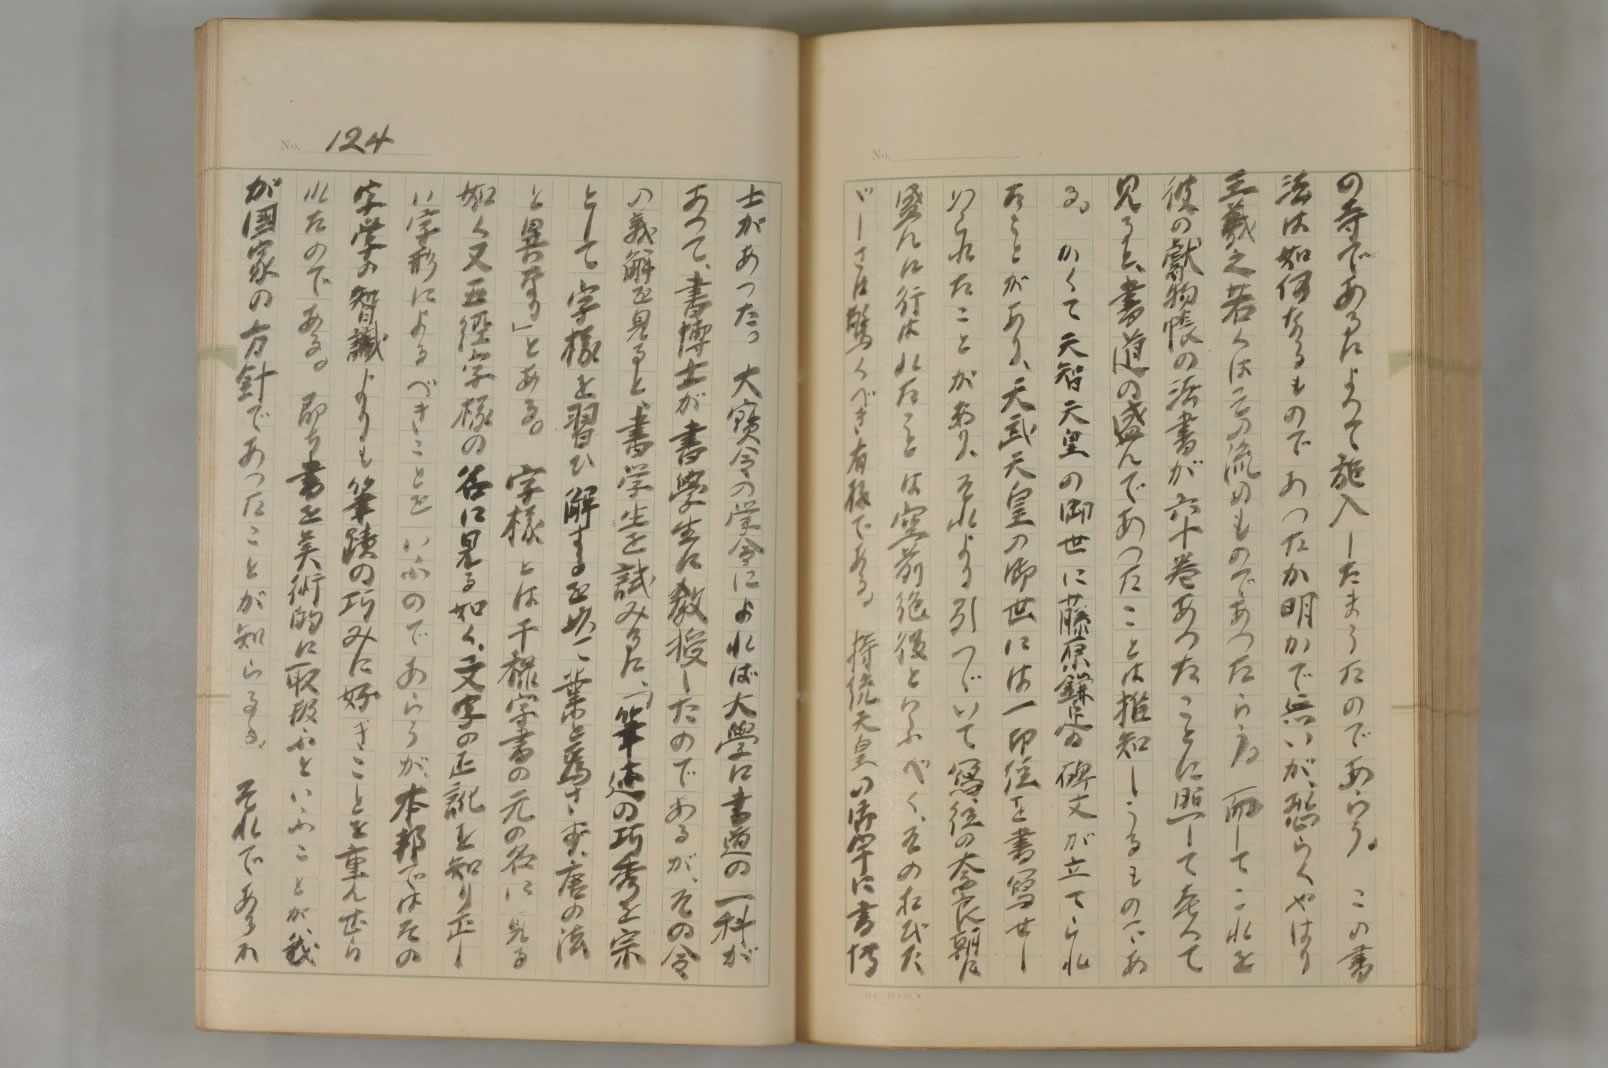 の寺であるによつて施入したまうたのであらう。この書
法は如何なるものであつたか明かで無いが、恐らくやはり
王羲之若くはその流のものであつたらう。而してこれを
彼の獻物帳の法書が六十巻あつたことに照して考へて
見ると、書道の盛んであつたことは推知しうるものであ
る。かくて天智天皇の御世に藤原鎌足の碑文が立てられ
たことがあり、天武天皇の御世には一切経を書写せし
められたことがあり、それより引つゞいて写経の奈良朝に
盛んに行はれたことは空前絶後といふべく、そのおびた
ゞしさは驚くべき有様である。持統天皇の御宇に書博
No. 124
士があつた。大寶令の学令によれば大學に書道の一科が
あつて、書博士が書學生に教授したのであるが、その令
の義解を見ると、書学生を試みるに、「筆迹の巧秀を宗
として字様を習ひ解するを以て業と為さず、唐の法
と異なる」とある。字様とは干禄字書の元の名に見る
如く又五経字様の名に見る如く、文字の正訛を知り正し
い字形によるべきことをいふのであらうが、本邦ではその
字学の智識よりも筆蹟の巧みに好きことを重んぜら
れたのである。即ち書を美術的に取扱ふといふことが、我
が国家の方針であつたことが知らるる。それであるか
No.